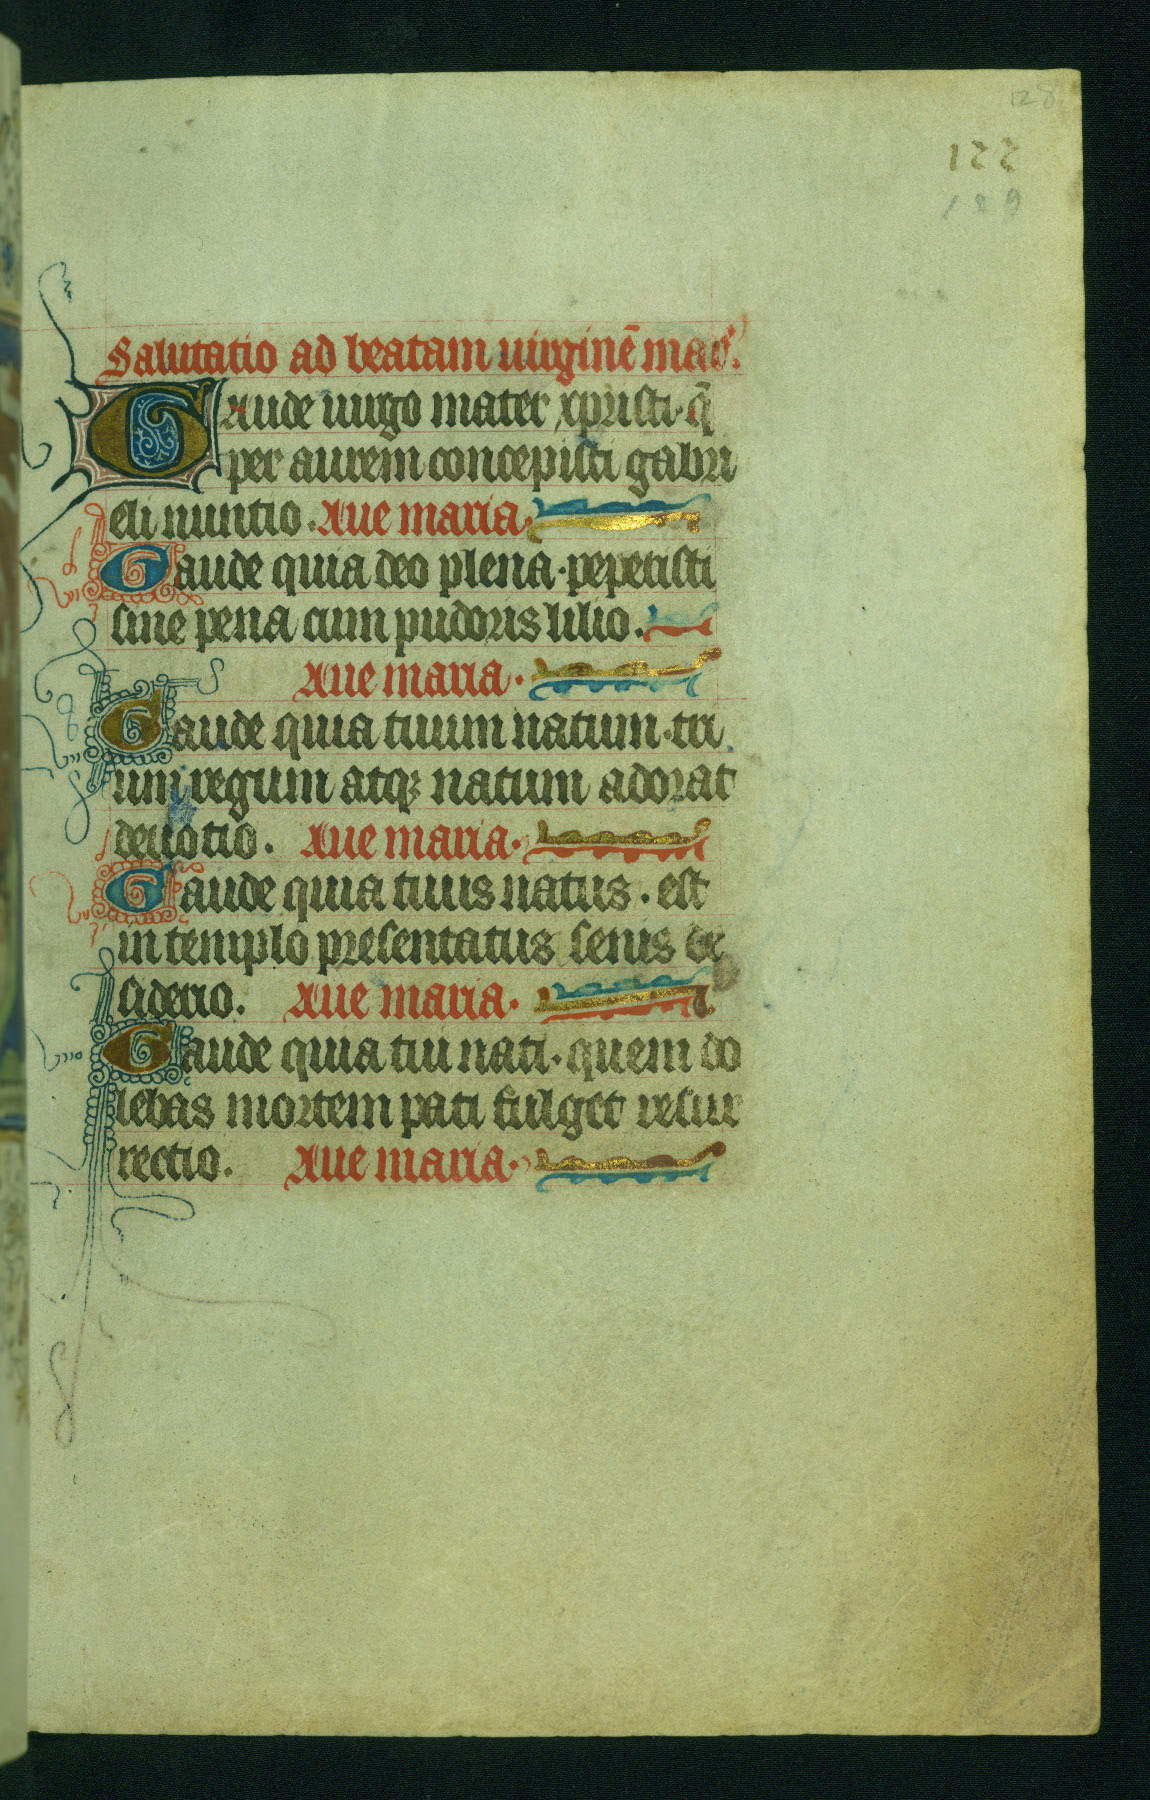 128
122
129
Salutatio ad beatam uirginē mar̄.
Gaude uirgo mater xpristi · q̄
per aurem concepisti gabri
eli nuntio. Aue maria.
Gaude quia deo plena · pepetisti
sine pena cum pudoris lilio.
Aue maria.
Gaude quia tuum natum · tri
um regum atq; natum adorat
deuotio. Aue maria.
Gaude quia tuus natus. est
in templo presentatus senis de
siderio. Aue maria.
Gaude quia tui nati · quem do
lebas mortem pati fulget resur
rectio. Aue maria.